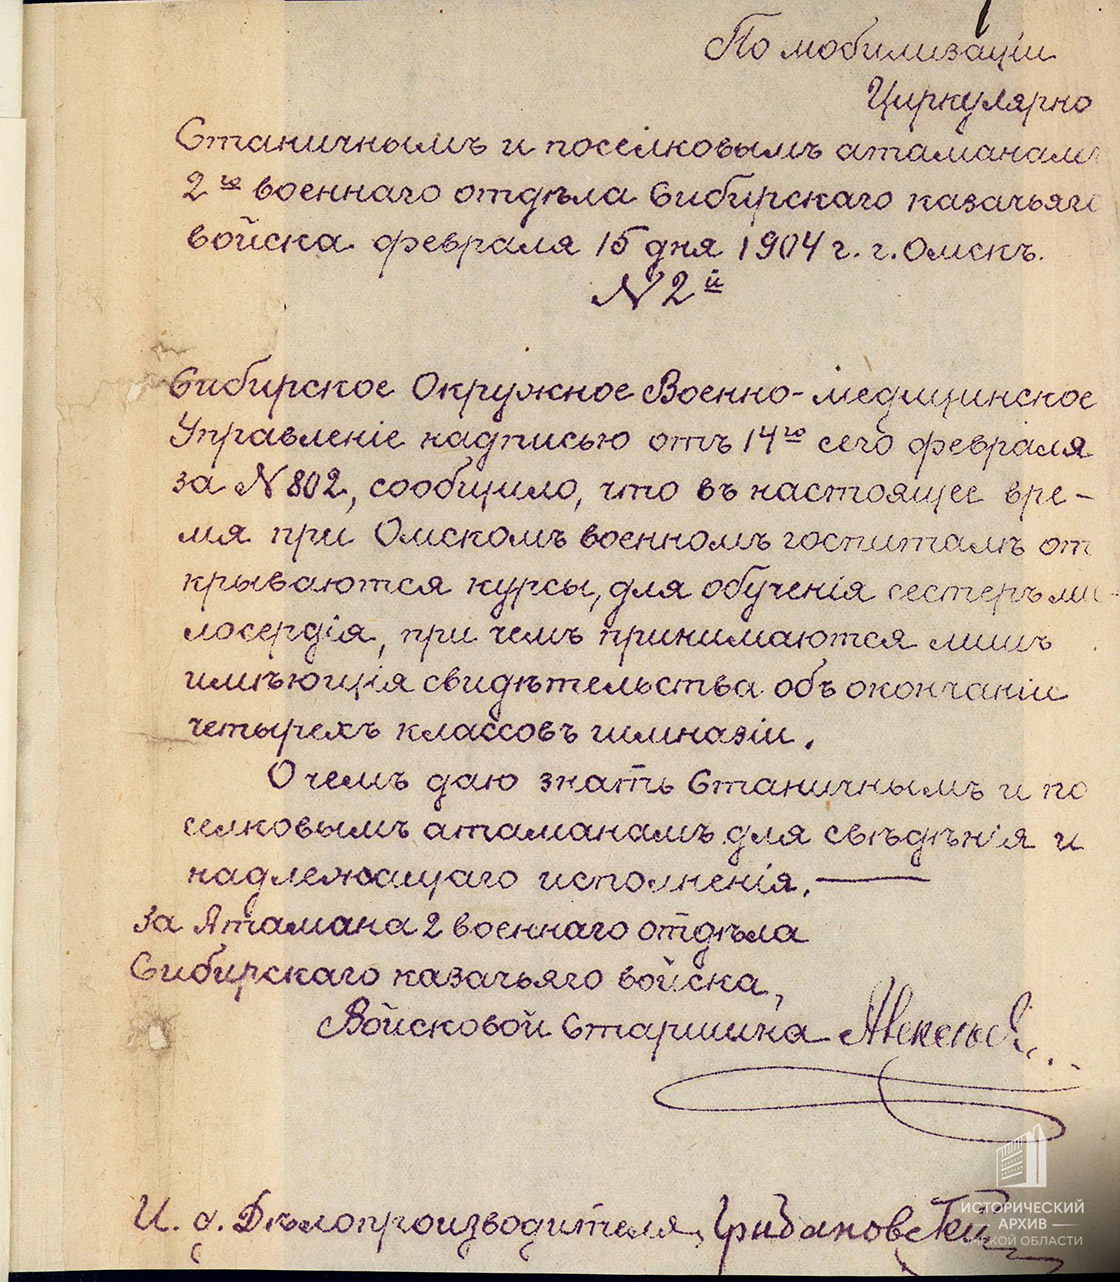 По мобилизаціи
Циркулярно
Станичнымъ и поселковымъ атаманамъ
2го военнаго отдѣла Сибирскаго казачьяго
войска февраля 15 дня 1904 г. г. Омскъ.
N 2й
Сибирское Окружное Военно-медицинское
Управленіе надписью отъ 14го сего февраля
за N 802, сообщило, что въ настоящее вре-
мя при Омскомъ военномъ госпиталѣ от
крываются курсы, для обученія сестеръ ми-
лосердія, при чемъ принимаются лишь
имѣющія свидѣтельства объ окончаніи
четырехъ классовъ гимназіи.
О чемъ даю знать Станичнымъ и по
селковымъ атаманамъ для свѣдѣнія и
надлежащаго исполненія.—
За Атамана 2 военнаго отдѣла
Сибирскаго казачьяго войска,
Войсковой Старшина Алексѣев
И. д. Дѣлопроизводителя, Грибановскій
ИСТОРИЧЕСКИЙ
АРХИВ
ОМСКОЙ ОБЛАСТИ